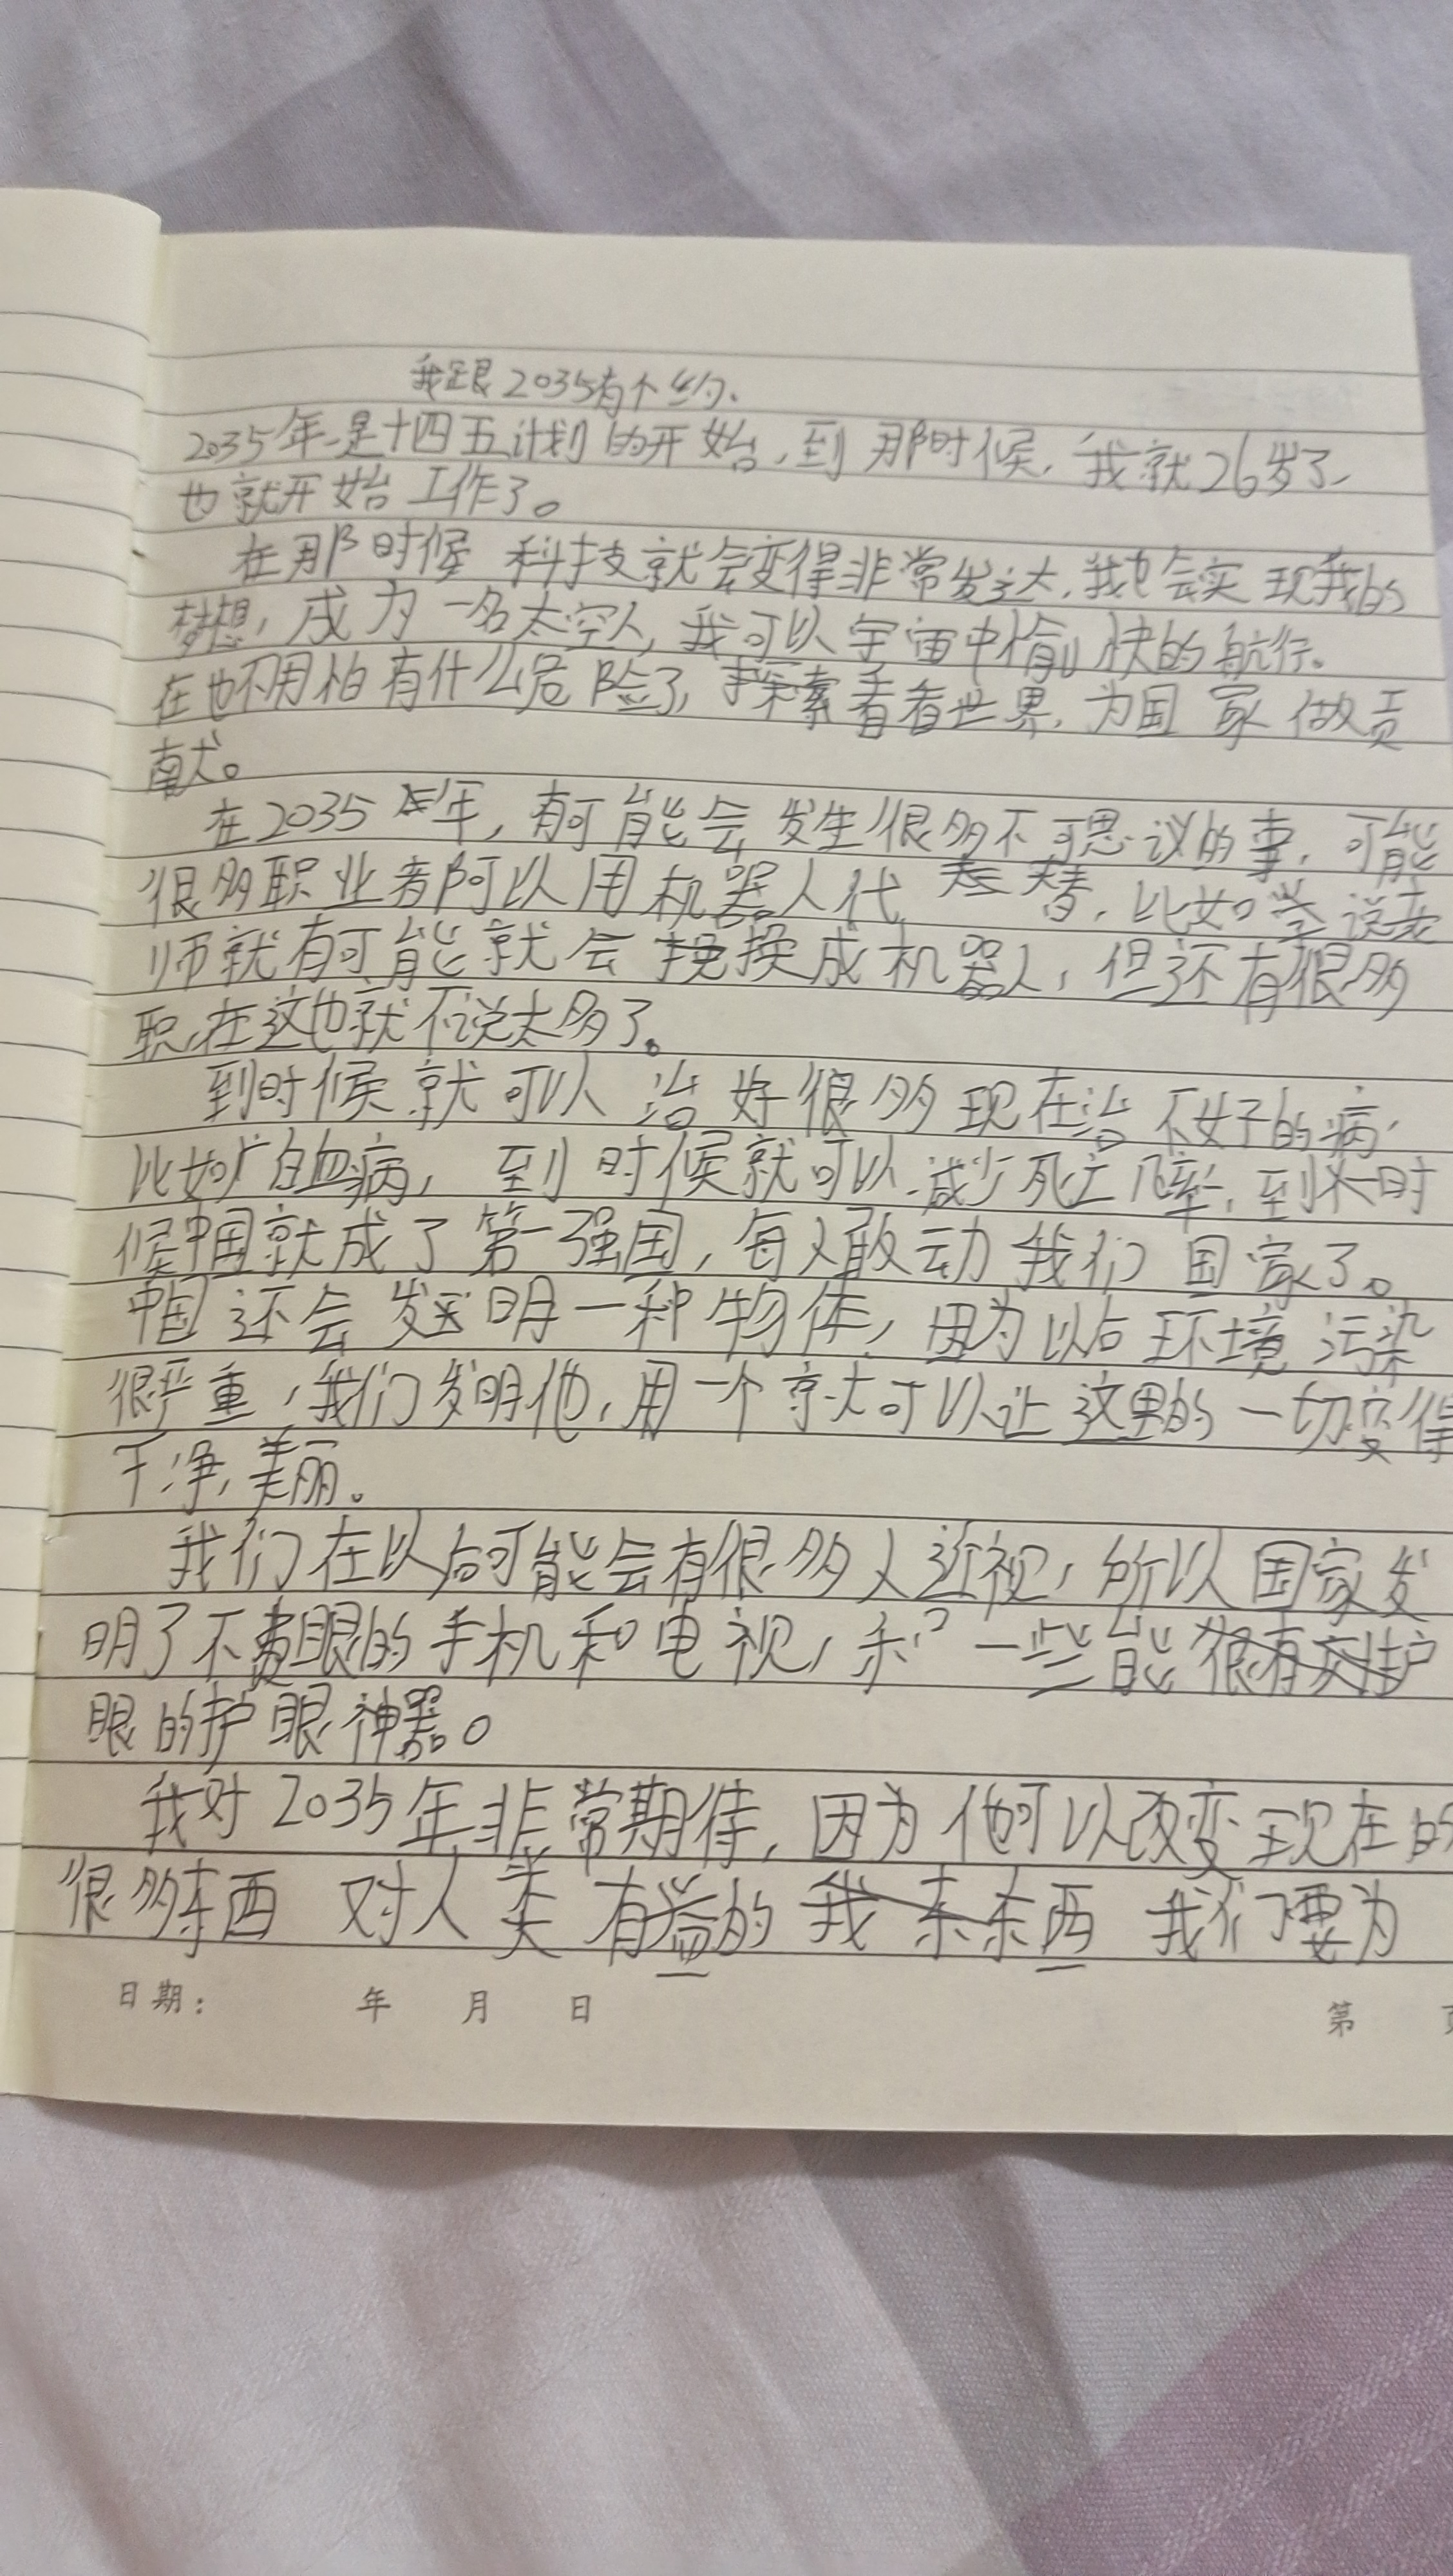 我跟2035有个约、
2035年是十四五计划的开始，到那时候，我就26岁了、
也就开始工作了。
在那时候 科技就会变得非常发达，我也会实现我的
梦想，成为一名太空人，我可以宇宙中愉快的航行。
在也不用怕有什么危险了，探索看看世界，为国家做贡
献。
在2035年，有可能会发生很多不可思议的事，可能
很多职业者都可以用机器人代替，比如 说老
师就有可能就会换成机器人，但还有很多
职，在这也就不说太多了。
到时候就可以治好很多现在治不好的病，
比如白血病，到时候就可以减少死亡率，到时
候中国就成了第一强国，每人敢动我们国家了。
中国还会发明一种物体，因为以后环境污染
很严重，我们发明他，用一个 可以让这里的一切变得
干净，美丽。
我们在以后可能会有很多人近视，所以国家发
明了不费眼的手机和电视，和一些能护
眼的护眼神器。
我对2035年非常期待，因为他可以改变现在的
很多东西 对人类有益的东西 我们要为
日期： 年 月 日
第